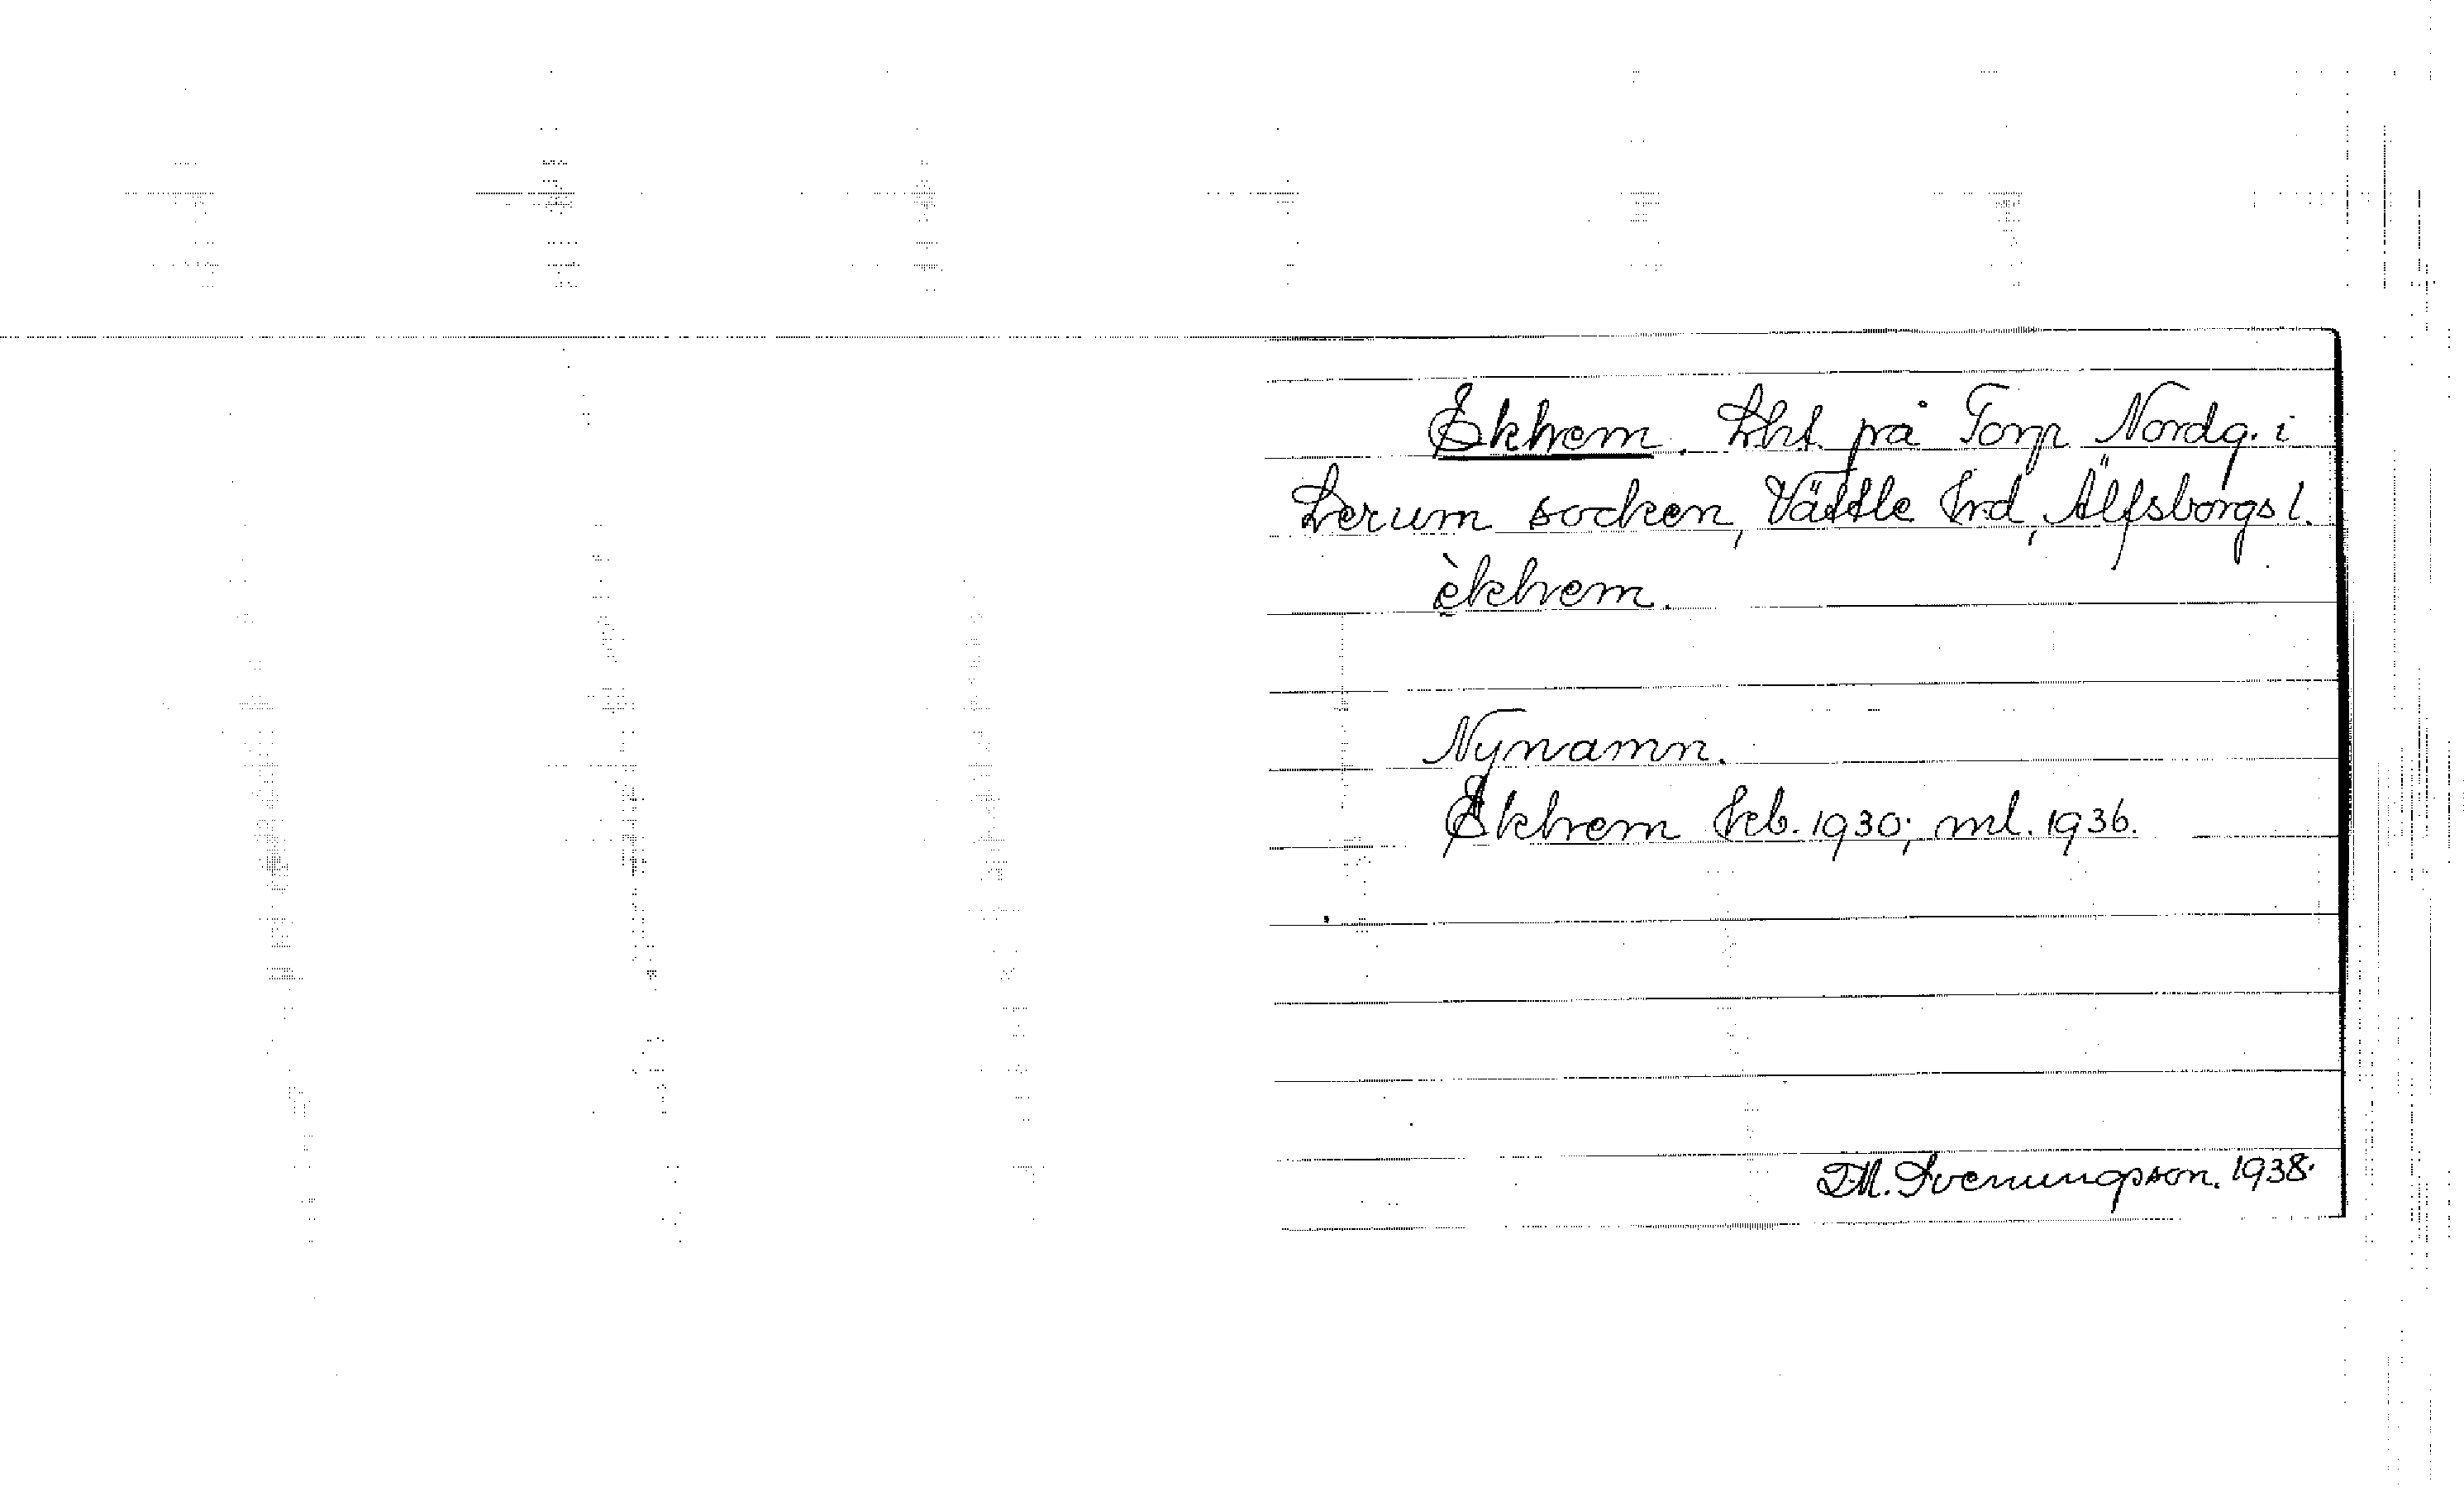 Ekhem. Lht. på Torp Nordg. i
Lerum socken, Vättle hrd, Älfsborgs l.
èkhem.
Nynamn.
Ekhem hfb. 1930; ml. 1936.
T.M. Svenungsson. 1938.